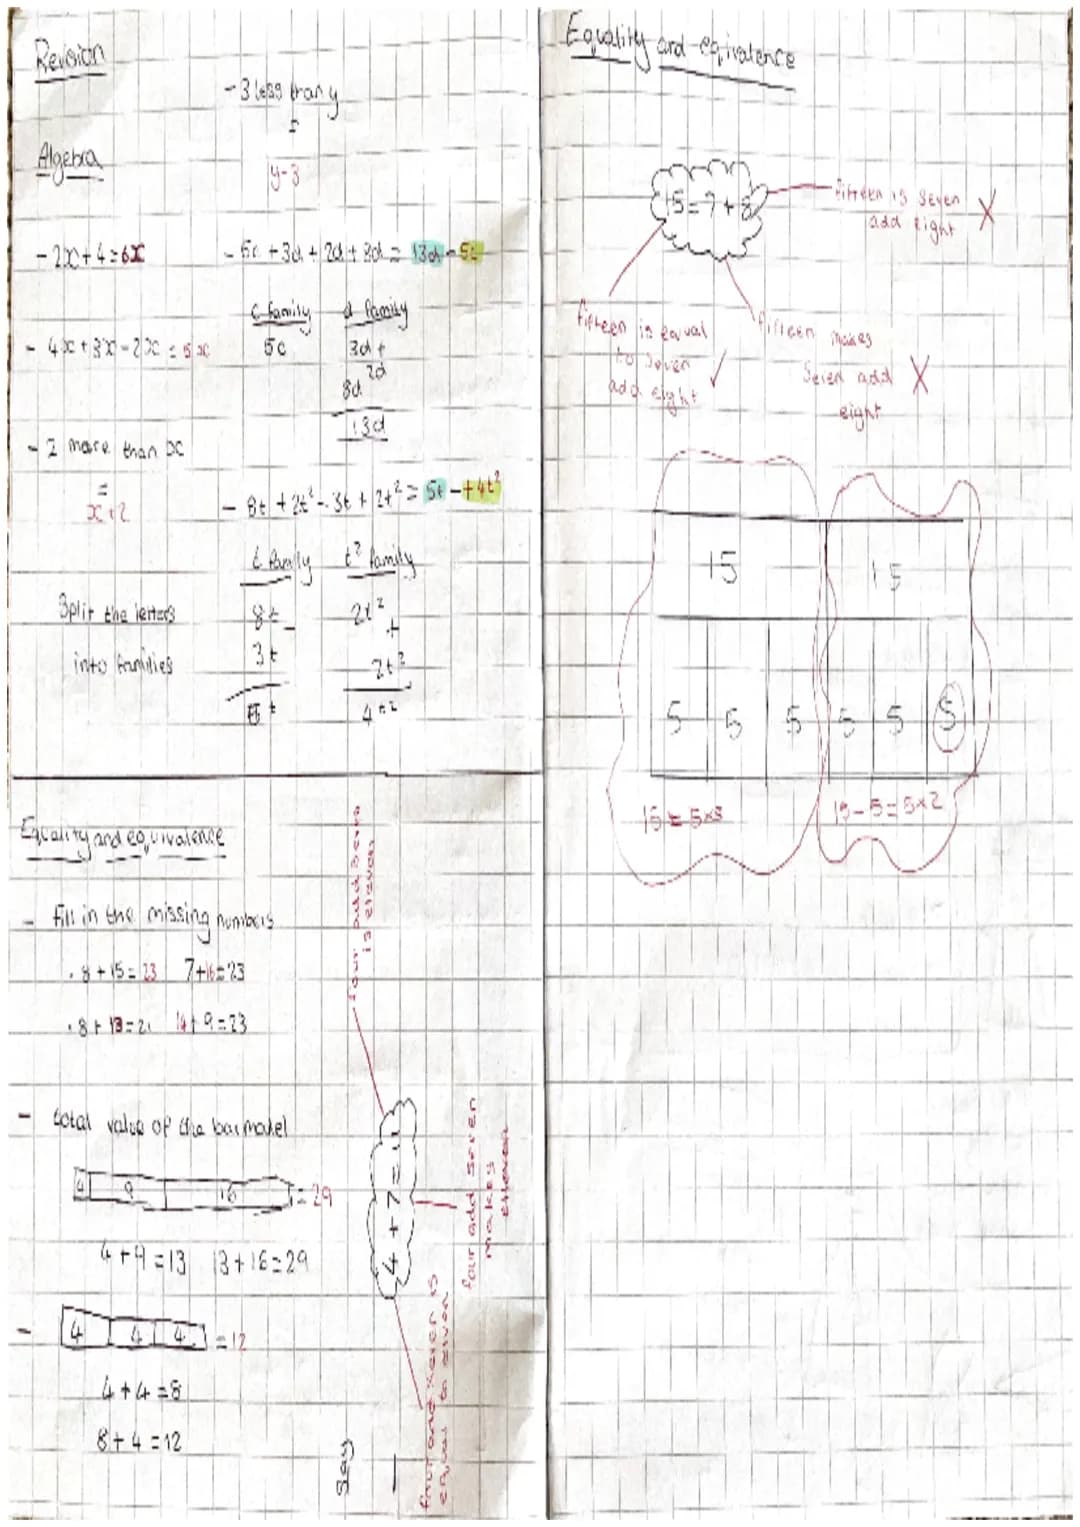 Revision
- 3 less than y
=
y-3
Algebra
- 2x+4=6x
- 5c + 3d + 2d + 8d = 13d - 5c
c family d family
5c 3d +
2d
8d
13d
- 4x+3x-2x = 5x
- 2 more than x
=
x+2
- 8t + 2t² - 3t + 2t² = 5t - +4t²
t family t² family
8t - 2t² +
3t 2t²
5t 4t²
Split the letters
into families
Equality and equivalence
- Fill in the missing numbers
. 8 + 15 = 23 7+16=23
. 8 + 13 = 21 14+9=23
- total value of the bar model
4 9 16 = 29
4+9=13 13+16=29
- 4 4 4 = 12
4+4=8
8+4=12
Say
-
4+7=11
four add seven
is eleven
four add seven
makes
eleven
four add seven is
equal to eleven
Equality and equivalence
15=7+8
fifteen is seven
add eight X
fifteen is equal
to seven
add eight ✓
fifteen makes
seven add X
eight
15 15
5 5 5 5 5 5
15 = 5x3 15-5=5x2